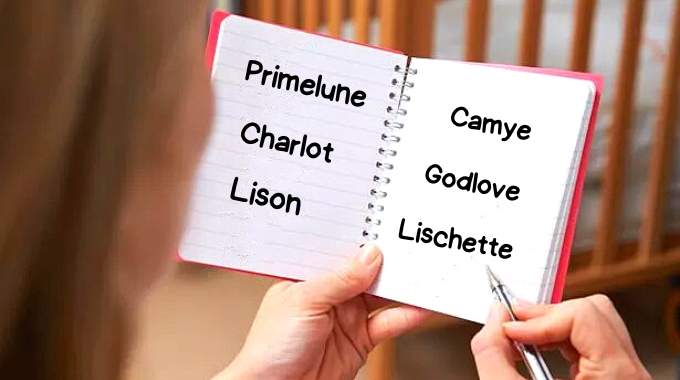 Primelune
Charlot
Lison
Camye
Godlove
Lischette